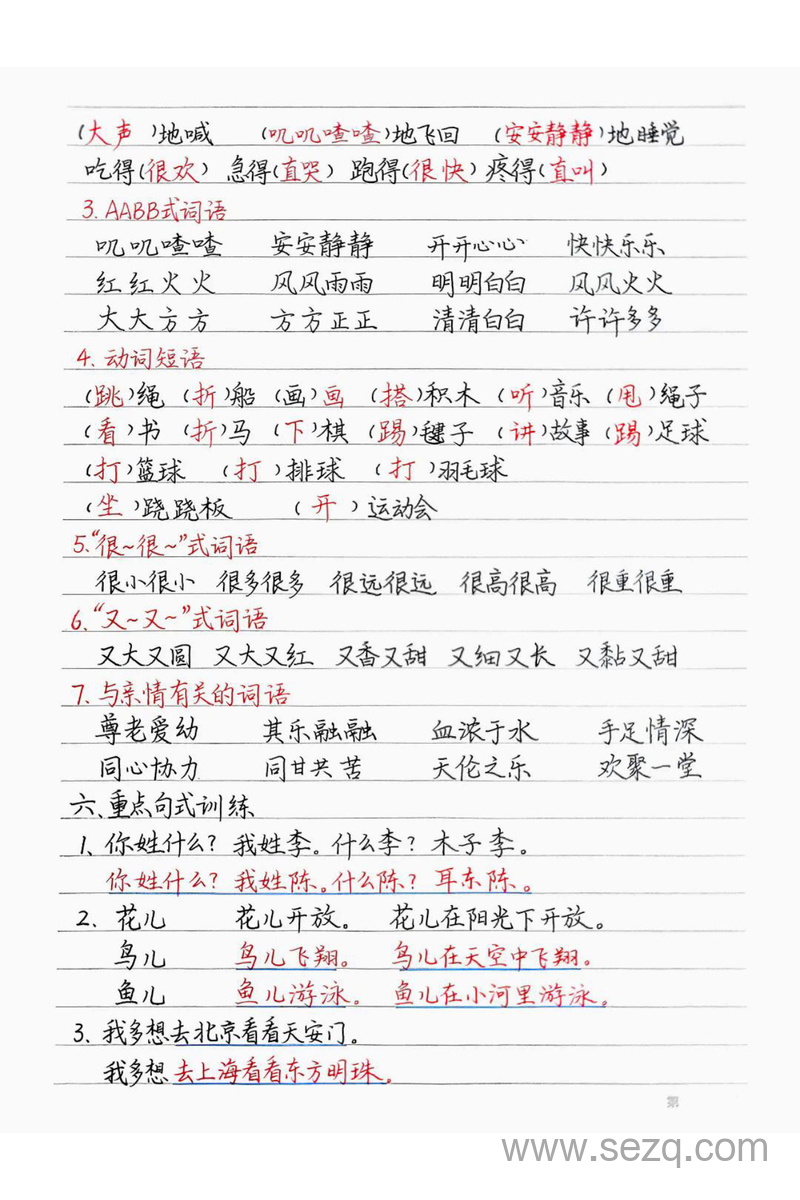 (大声)地喊 (叽叽喳喳)地飞回 (安安静静)地睡觉
吃得(很欢) 急得(直哭) 跑得(很快) 疼得(直叫)
3. AABB式词语
叽叽喳喳 安安静静 开开心心 快快乐乐
红红火火 风风雨雨 明明白白 风风火火
大大方方 方方正正 清清白白 许许多多
4. 动词短语
(跳)绳 (折)船 (画)画 (搭)积木 (听)音乐 (甩)绳子
(看)书 (折)马 (下)棋 (踢)毽子 (讲)故事 (踢)足球
(打)篮球 (打)排球 (打)羽毛球
(坐)跷跷板 (开)运动会
5.“很~很~”式词语
很小很小 很多很多 很远很远 很高很高 很重很重
6.“又~又~”式词语
又大又圆 又大又红 又香又甜 又细又长 又黏又甜
7. 与亲情有关的词语
尊老爱幼 其乐融融 血浓于水 手足情深
同心协力 同甘共苦 天伦之乐 欢聚一堂
六、重点句式训练
1、你姓什么?我姓李。什么李?木子李。
你姓什么?我姓陈。什么陈?耳东陈。
2. 花儿 花儿开放。 花儿在阳光下开放。
鸟儿 鸟儿飞翔。 鸟儿在天空中飞翔。
鱼儿 鱼儿游泳。 鱼儿在小河里游泳。
3. 我多想去北京看看天安门。
我多想去上海看看东方明珠。
第
www.sezq.com